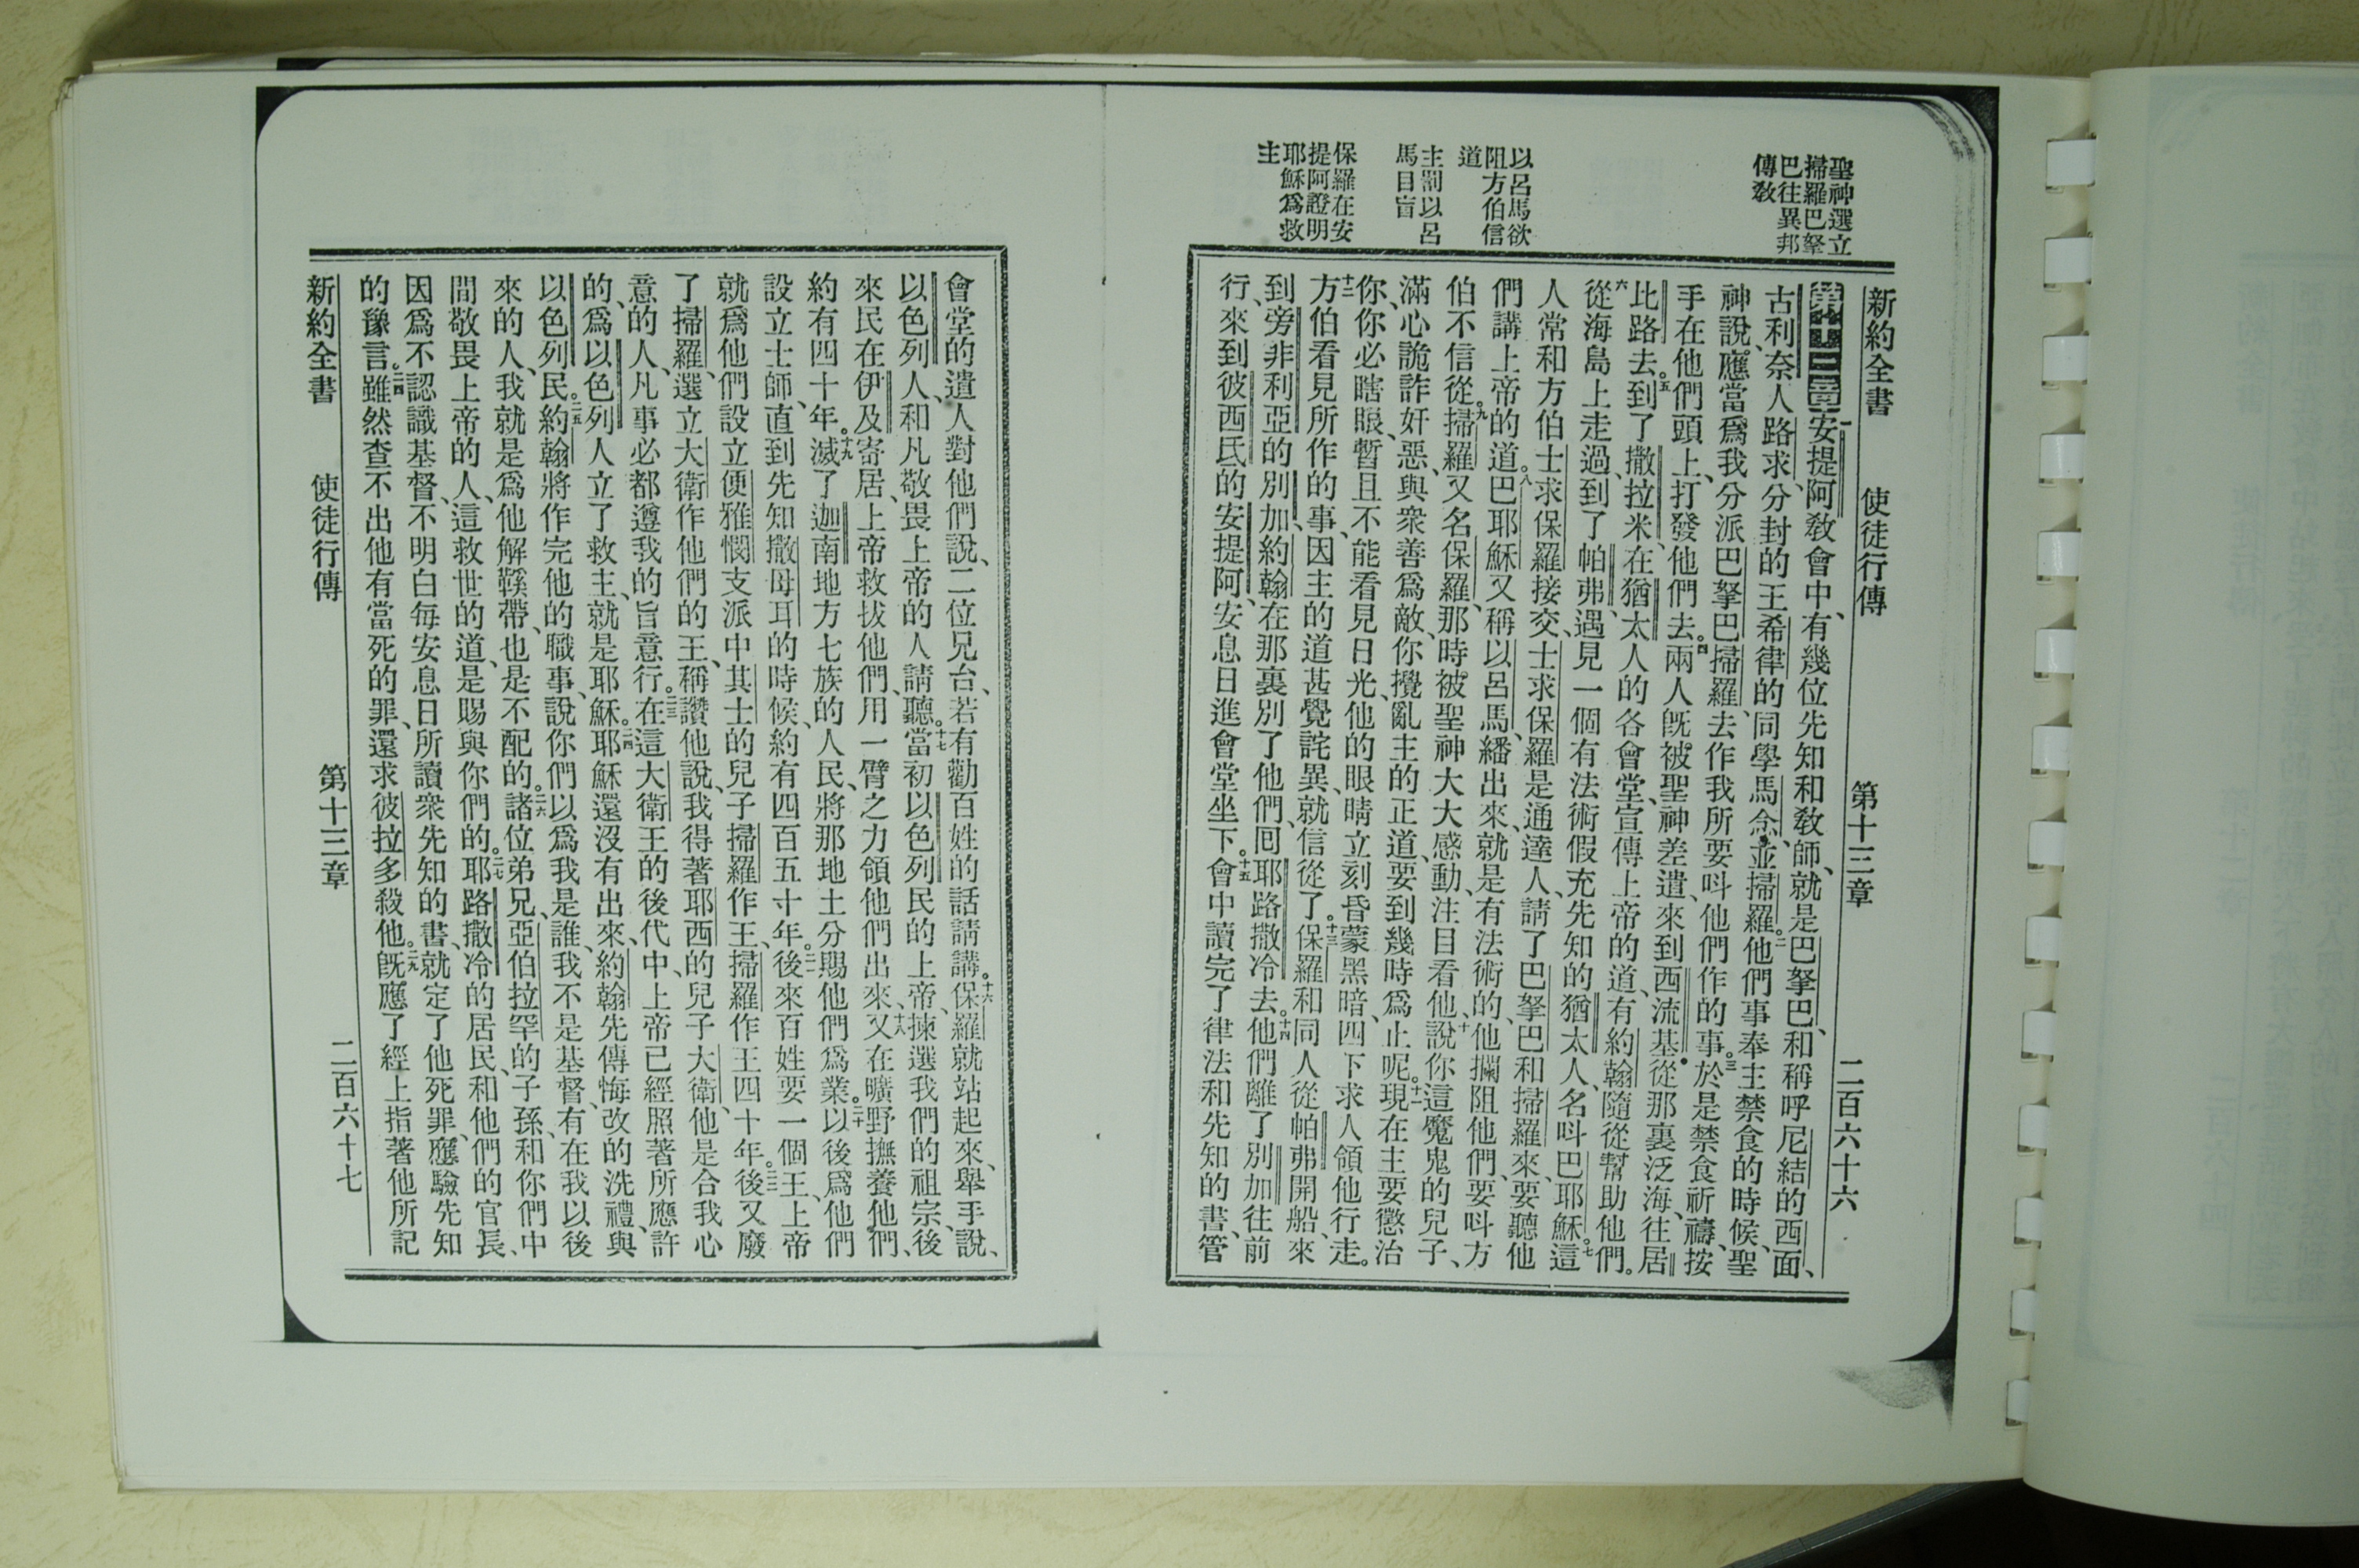 聖神選立
掃羅巴拏
巴往異邦
傳敎
以呂馬欲
阻方伯信
道
主罰以呂
馬目盲
保羅在安
提阿證明
耶穌爲救
主
新約全書 使徒行傳 第十三章 二百六十六
第十三章一安提阿敎會中、有幾位先知和敎師、就是巴拏巴、和稱呼尼結的西面、
古利奈人路求、分封的王希律的同學馬念、並掃羅。二他們事奉主禁食的時候、聖
神說、應當爲我分派巴拏巴掃羅、去作我所要呌他們作的事。三於是禁食祈禱、按
手在他們頭上、打發他們去。四兩人旣被聖神差遣、來到西流基、從那裏泛海、往居
比路去。五到了撒拉米、在猶太人的各會堂、宣傳上帝的道、有約翰隨從幫助他們。
六從海島上走過、到了帕弗、遇見一個有法術假充先知的猶太人、名呌巴耶穌。七這
人常和方伯士求保羅接交、士求保羅是通達人、請了巴拏巴和掃羅來、要聽他
們講上帝的道。八巴耶穌又稱以呂馬、繙出來、就是有法術的、他攔阻他們、要呌方
伯不信從。九掃羅又名保羅、那時被聖神大大感動、注目看他、十說你這魔鬼的兒子、
滿心詭詐奸惡、與衆善爲敵、你攪亂主的正道、要到幾時爲止呢。十一現在主要懲治
你、你必瞎眼、暫且不能看見日光、他的眼睛立刻昏蒙黑暗、四下求人領他行走。
十二方伯看見所作的事、因主的道甚覺詫異、就信從了。十三保羅和同人從帕弗開船、來
到旁非利亞的別加、約翰在那裏別了他們、囘耶路撒冷去。十四他們離了別加往前
行、來到彼西氏的安提阿、安息日進會堂坐下。十五會中讀完了律法和先知的書、管
會堂的遣人對他們說、二位兄台、若有勸百姓的話請講。十六保羅就站起來、舉手說、
以色列人、和凡敬畏上帝的人、請聽。十七當初以色列民的上帝、揀選我們的祖宗、後
來民在伊及寄居、上帝救拔他們、用一臂之力領他們出來、十八又在曠野撫養他們、
約有四十年。十九滅了迦南地方七族的人民、將那地土分賜他們爲業。二十以後爲他們
設立士師、直到先知撒母耳的時候、約有四百五十年。二一後來百姓要一個王、上帝
就爲他們設立便雅憫支派中、其士的兒子掃羅作王、掃羅作王四十年。二二後又廢
了掃羅、選立大衛作他們的王、稱讚他說、我得著耶西的兒子大衛、他是合我心
意的人、凡事必都遵我的旨意行。二三在這大衛王的後代中、上帝已經照著所應許
的、爲以色列人立了救主、就是耶穌。二四耶穌還沒有出來、約翰先傳悔改的洗禮、與
以色列民。二五約翰將作完他的職事、說你們以爲我是誰、我不是基督、有在我以後
來的人、我就是爲他解鞵帶、也是不配的。二六諸位弟兄、亞伯拉罕的子孫、和你們中
間敬畏上帝的人、這救世的道、是賜與你們的。二七耶路撒冷的居民、和他們的官長、
因爲不認識基督、不明白每安息日所讀衆先知的書、就定了他死罪、應驗先知
的豫言。二八雖然查不出他有當死的罪、還求彼拉多殺他。二九旣應了經上指著他所記
新約全書 使徒行傳 第十三章 二百六十七